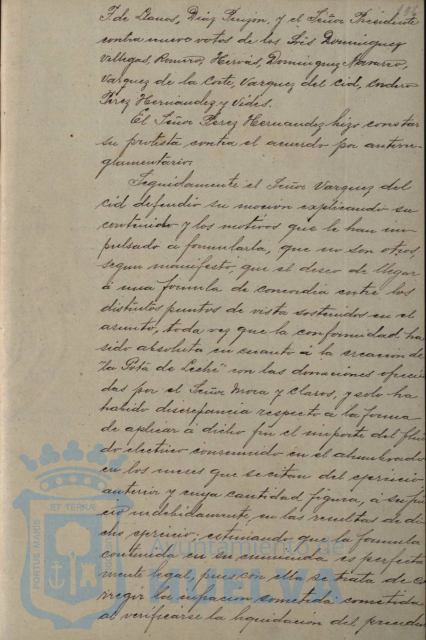 F. de Llanos, Diaz Pinzon, y el Señor Presidente
contra nueve votos de los Sres Dominguez
Villegas, Romero, Hervás, Dominguez Navarro,
Vazquez de la Corte, Vazquez del Cid, Cordero
Perez Hernandez y Vides.
El Señor Perez Hernandez hizo constar
su protesta contra el acuerdo por antirre-
glamentario.
Seguidamente el Señor Vazquez del
Cid defendió su moción explicando su
contenido y los motivos que le han im-
pulsado á formularla, que no son otros,
segun manifestó, que el deseo de llegar
á una formula de concordia entre los
distintos puntos de vista sostenidos en el
asunto, toda vez que la conformidad ha
sido absoluta en cuanto á la creación de
"La Gota de Leche" con las donaciones ofreci-
das por el Señor Mora y Claros, y solo ha
habido discrepancia respecto á la forma
de aplicar á dicho fin el importe del flui-
do electrico consumido en el alumbrado
en los meses que se citan del ejercicio
anterior y cuya cantidad figura, á su jui-
cio indebidamente, en las resultas de di-
cho ejercicio; estimando que la formula
contenida en su enmienda es perfecta-
mente legal, pues con ella se trata de co-
rregir la cometida
al verificarse la liquidación del
PORTUS MARIS
ET TERRAE
Ayuntamiento de
HUELVA